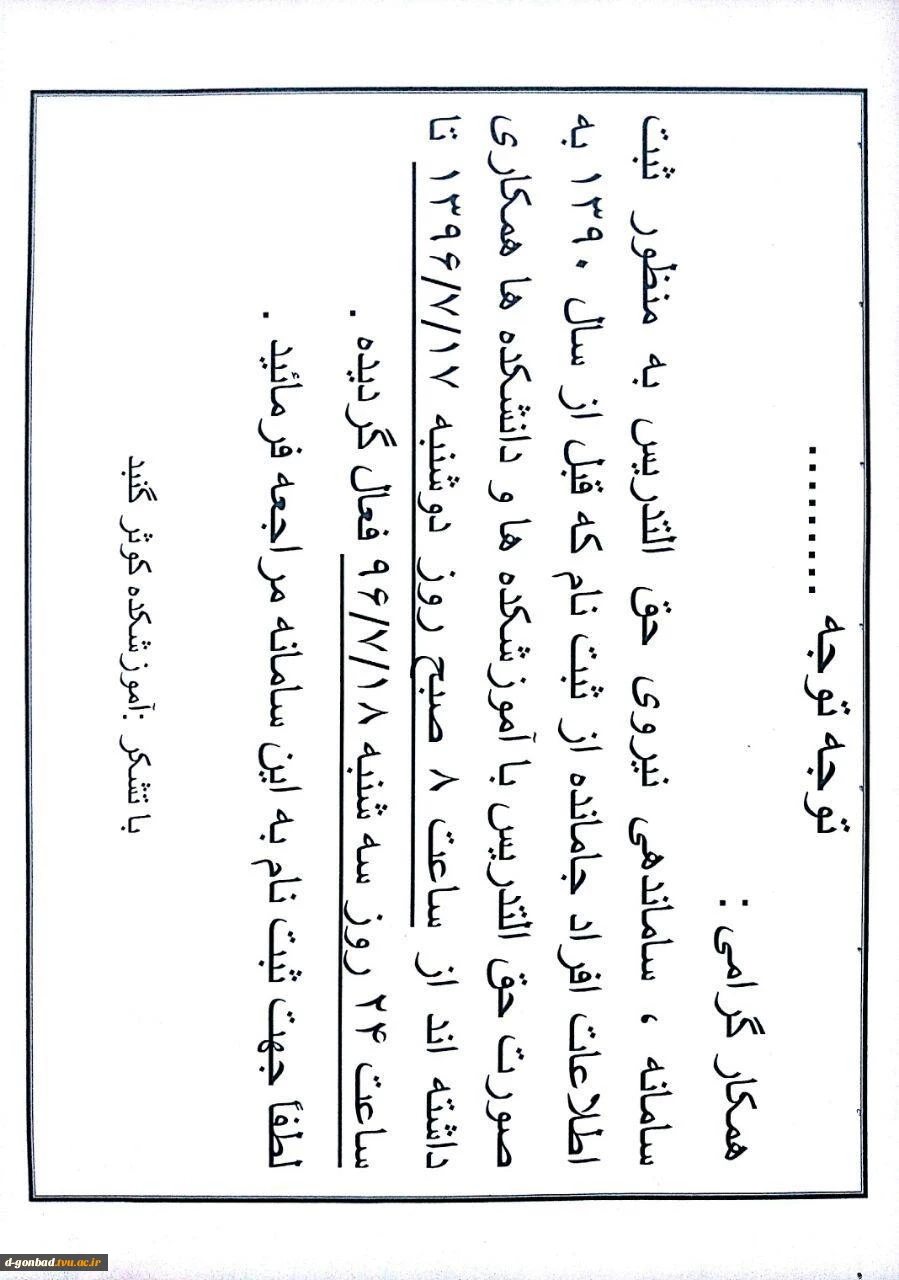 توجه توجه .........
همکار گرامی :
سامانه ، ساماندهی نیروی حق التدریس به منظور ثبت
اطلاعات افراد جامانده از ثبت نام که قبل از سال ۱۳۹۰ به
صورت حق التدریس با آموزشکده ها و دانشکده ها همکاری
داشته اند از ساعت ۸ صبح روز دوشنبه ۱۳۹۶/۷/۱۷ تا
ساعت ۲۴ روز سه شنبه ۹۶/۷/۱۸ فعال گردیده .
لطفاً جهت ثبت نام به این سامانه مراجعه فرمائید .
با تشکر :آموزشکده کوثر گنبد
d-gonbad.tvu.ac.ir